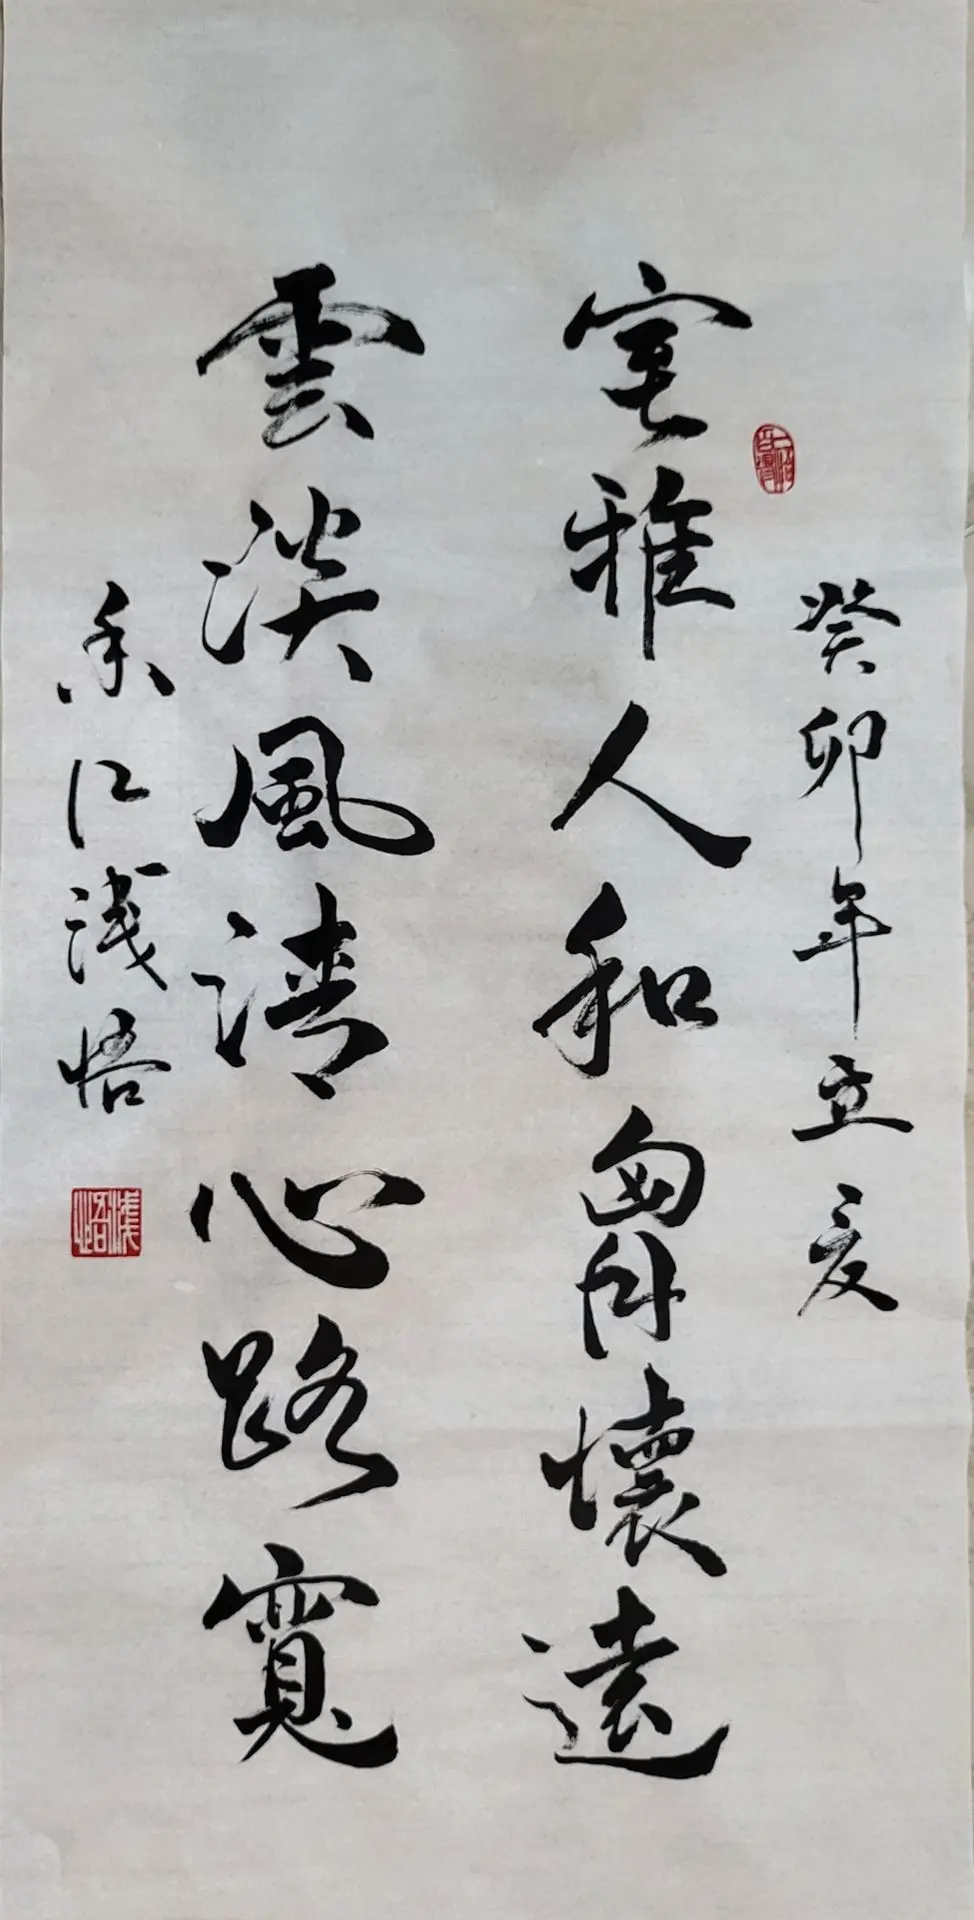 癸卯年立夏
室雅人和胷懷遠
雲淡風清心路寬
香江浅悟
淺悟